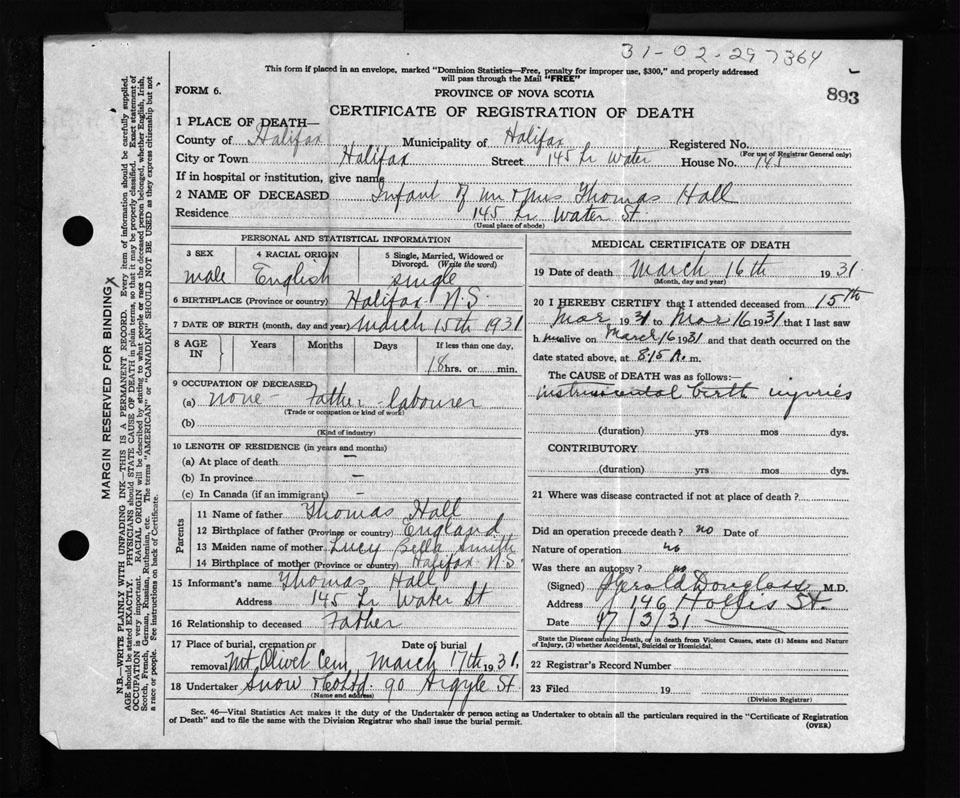 31-02-297364
This form if placed in an envelope, marked "Dominion Statistics—Free, penalty for improper use, $300," and properly addressed
will pass through the Mail "FREE"
893
FORM 6.
PROVINCE OF NOVA SCOTIA
CERTIFICATE OF REGISTRATION OF DEATH
1 PLACE OF DEATH—
County of Halifax Municipality of Halifax Registered No.
(For use of Registrar General only)
City or Town Halifax Street 145 Lr Water House No. 145
If in hospital or institution, give name
2 NAME OF DECEASED Infant of Mr & Mrs Thomas Hall
Residence 145 Lr Water St.
(Usual place of abode)
PERSONAL AND STATISTICAL INFORMATION
3 SEX 4 RACIAL ORIGIN 5 Single, Married, Widowed or
Divorced. (Write the word)
male English single
6 BIRTHPLACE (Province or country) Halifax N.S.
7 DATE OF BIRTH (month, day and year) March 15th 1931
8 AGE IN Years Months Days If less than one day,
18 hrs. or min.
9 OCCUPATION OF DECEASED
(a) none - Father - labourer
(Trade or occupation or kind of work)
(b)
(Kind of industry)
10 LENGTH OF RESIDENCE (in years and months)
(a) At place of death —
(b) In province —
(c) In Canada (if an immigrant) —
Parents
11 Name of father Thomas Hall
12 Birthplace of father (Province or country) England
13 Maiden name of mother Lucy Bella Smith
14 Birthplace of mother (Province or country) Halifax N.S.
15 Informant's name Thomas Hall
Address 145 Lr Water St
16 Relationship to deceased Father
17 Place of burial, cremation or Date of burial
removal Mt Olivet Cem, March 17th 1931.
18 Undertaker Snow & Co Ltd. 90 Argyle St.
(Name and address)
MEDICAL CERTIFICATE OF DEATH
19 Date of death March 16th 1931
(Month, day and year)
20 I HEREBY CERTIFY that I attended deceased from 15th
Mar 1931 to Mar 16 1931 that I last saw
h alive on March 16 1931 and that death occurred on the
date stated above, at 8.15 A. m.
The CAUSE OF DEATH was as follows:—
instrumental birth injuries
(duration) yrs mos dys.
CONTRIBUTORY
(duration) yrs mos dys.
21 Where was disease contracted if not at place of death?
Did an operation precede death? no Date of
Nature of operation no
Was there an autopsy? no
(Signed) Gerald Douglass M.D.
Address 146 Hollis St.
Date 17/3/31
State the Disease causing Death, or in death from Violent Causes, state (1) Means and Nature
of Injury, (2) whether Accidental, Suicidal or Homicidal.
22 Registrar's Record Number
23 Filed 19
(Division Registrar)
Sec. 46—Vital Statistics Act makes it the duty of the Undertaker or person acting as Undertaker to obtain all the particulars required in the "Certificate of Registration
of Death" and to file the same with the Division Registrar who shall issue the burial permit.
(OVER)
MARGIN RESERVED FOR BINDING
N.B.—WRITE PLAINLY WITH UNFADING INK—THIS IS A PERMANENT RECORD. Every item of information should be carefully supplied.
AGE should be stated EXACTLY. PHYSICIANS should STATE CAUSE OF DEATH in plain terms, so that it may be properly classified. Exact statement of
OCCUPATION is very important. RACIAL ORIGIN will be described by stating to what people or race the deceased person belonged, whether English, Irish,
Scotch, French, German, Russian, Ruthenian, etc. The terms "AMERICAN" or "CANADIAN" SHOULD NOT BE USED as they express citizenship but not
a race or people. See instructions on back of Certificate.